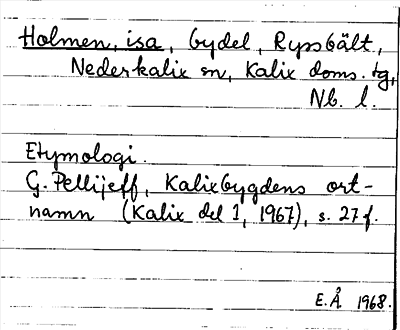 Holmen, isa, bydel, Ryssbält,
Nederkalix sn, Kalix doms. tg,
Nb. l.
Etymologi.
G. Pellijeff, Kalixbygdens ort-
namn (Kalix del 1, 1967), s. 27 f.
E. Å 1968.